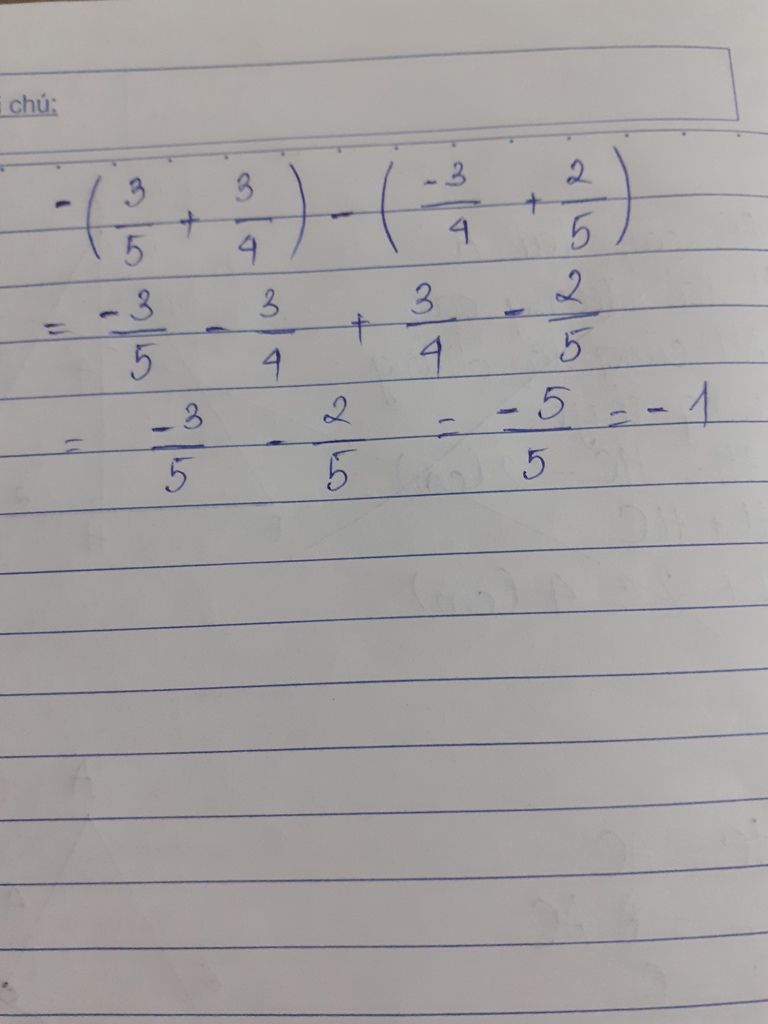 i chú:
-(3/5 + 3/4) - (-3/4 + 2/5)
= -3/5 - 3/4 + 3/4 - 2/5
= -3/5 - 2/5 = -5/5 = -1